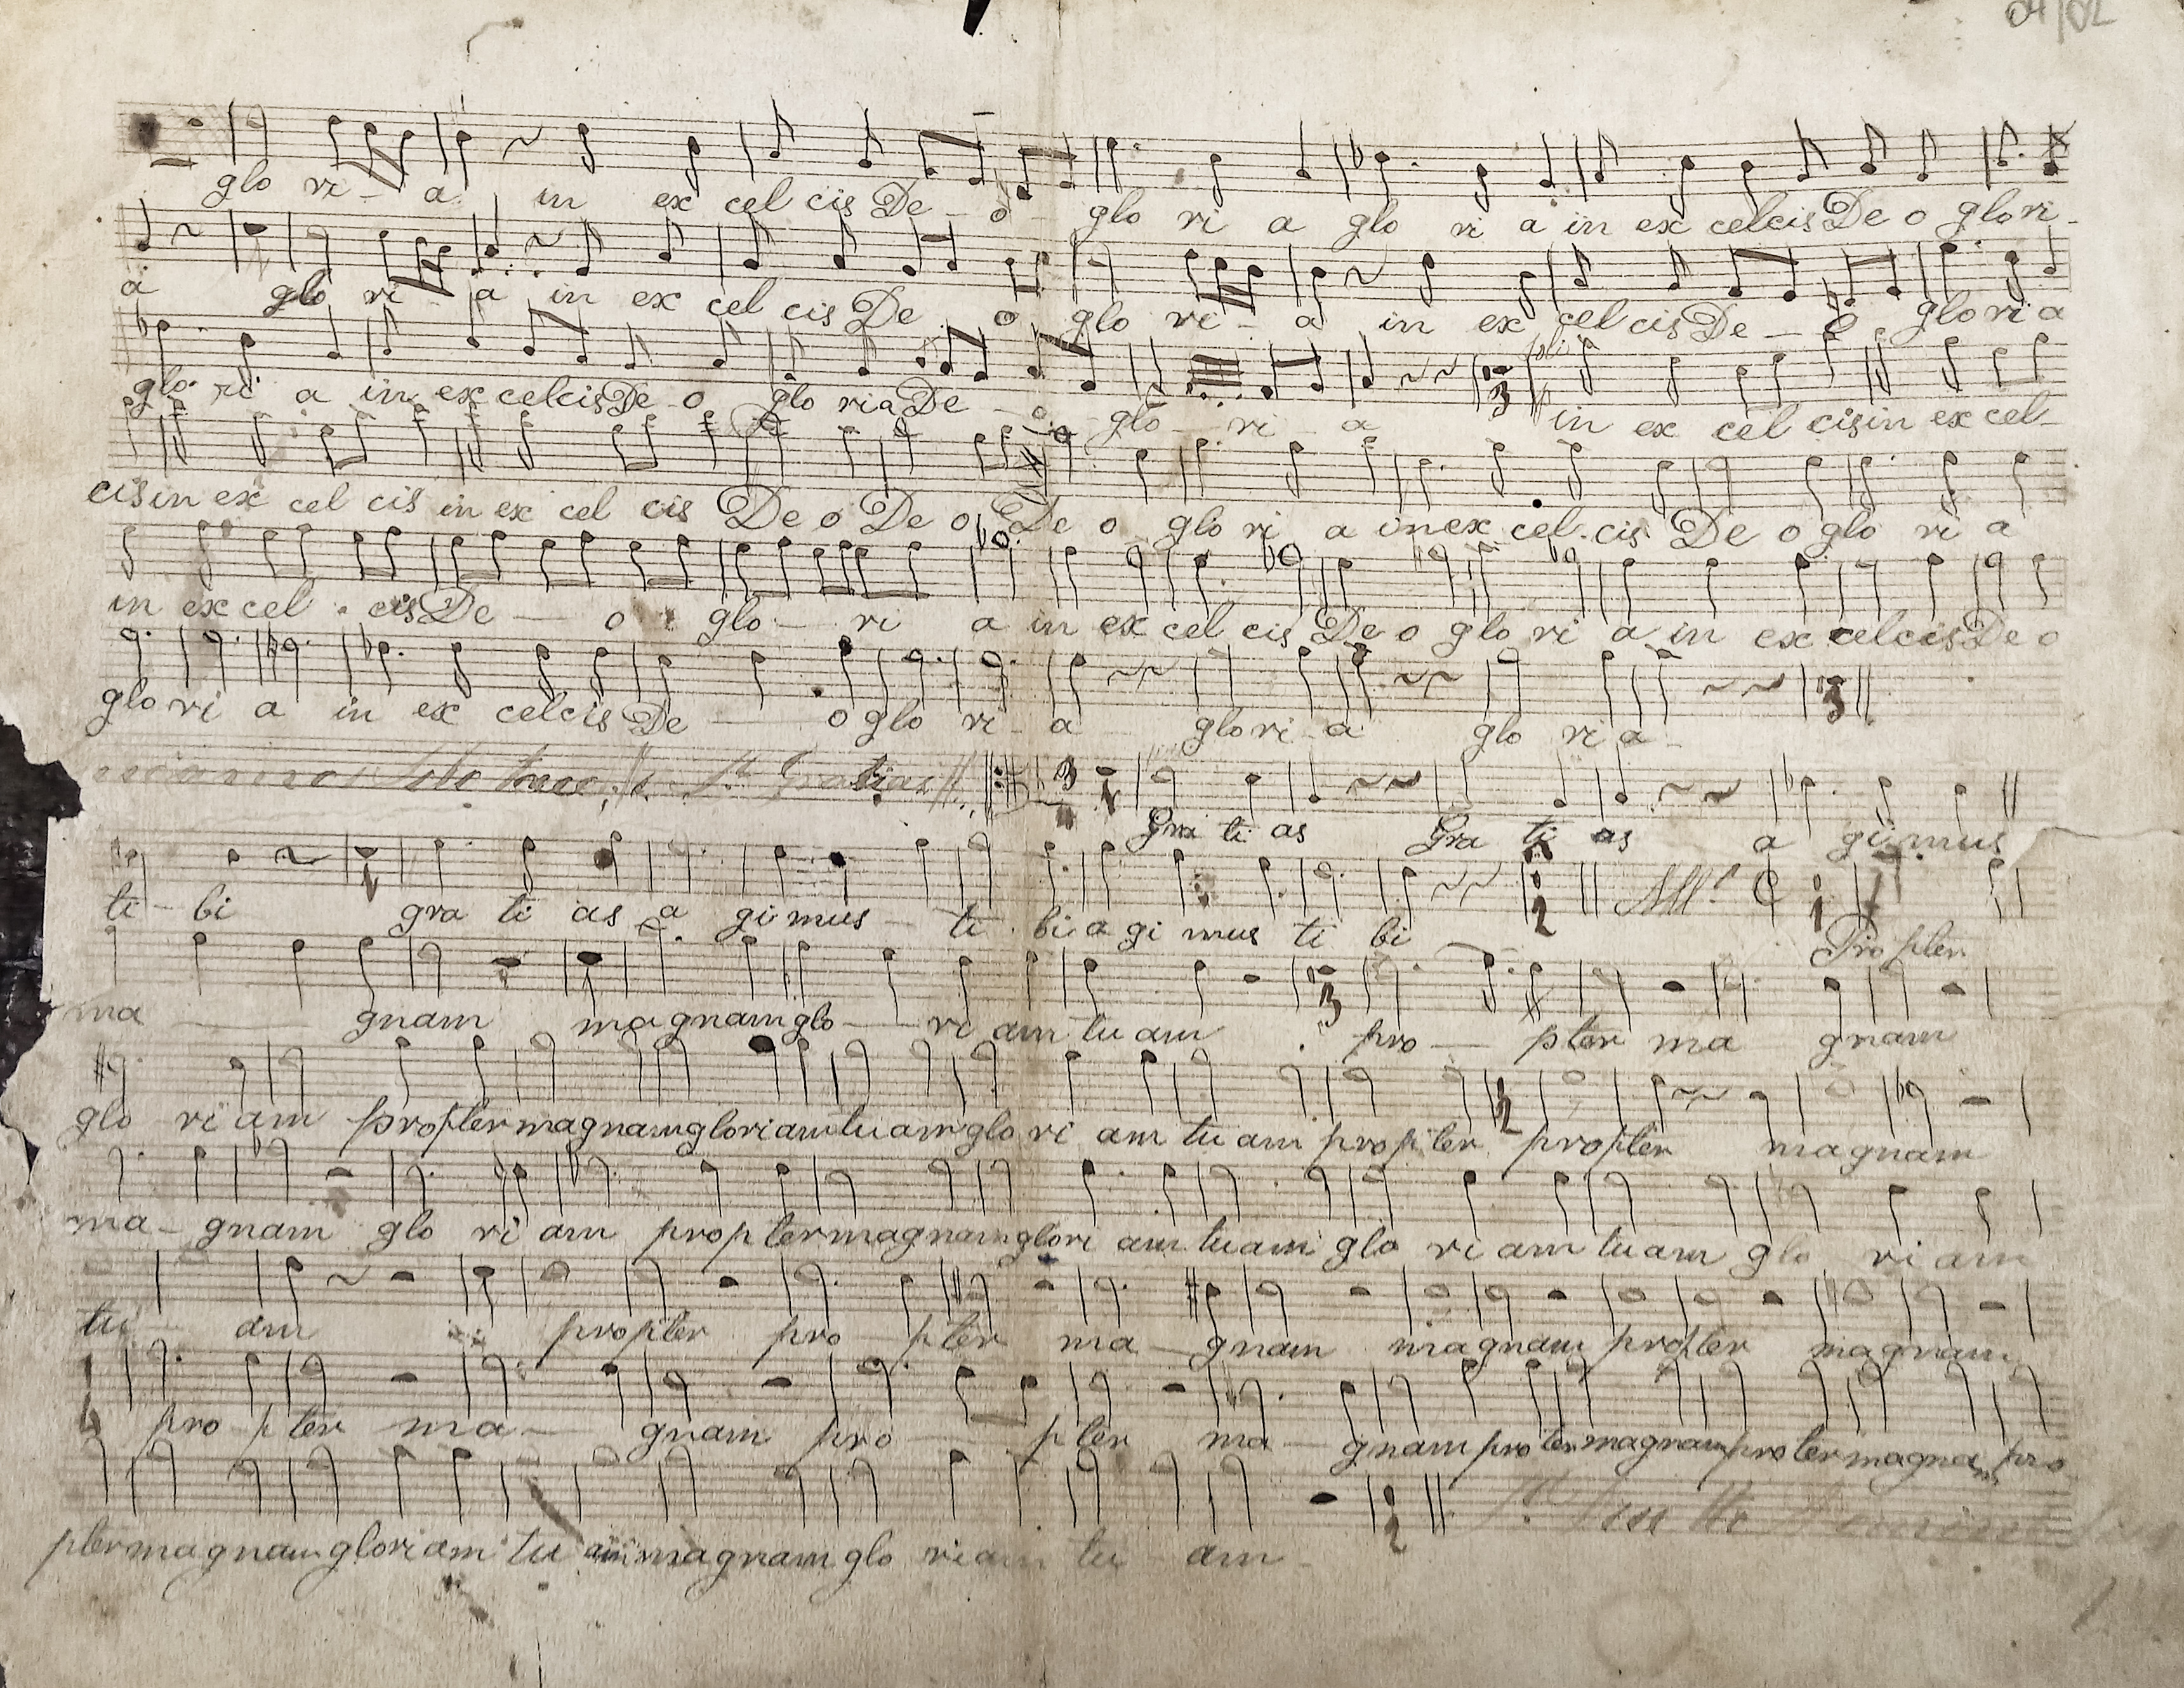 04/02
glo ri - a in ex cel cis De - o glo ri a glo ri a in ex celcis De o glo ri -
a glo ri a in ex cel cis De o glo ri - a in ex cel cis De - o glo ri a
soli
glo ri a in ex celcis De o glo ria De - o - glo - ri - a in ex cel cis in ex cel -
cis in ex cel cis in ex cel cis De o De o De o glo ri a in ex cel . cis De o glo ri a
in ex cel . cis De - o glo - ri a in ex cel cis De o glo ri a in ex celcis De o
glo ri a in ex celcis De - o glo ri - a glo ri - a glo ri a -
3 Gra ti as Gra ti as a gi mus
All.º
ti - bi gra ti as a gi mus - ti . bi a gi mus ti bi Propter
ma - gnam magnam glo - ri am tu am pro - pter ma gnam
glo ri am propter magnam gloriam tuam glo ri am tu am propter propter magnam
ma - gnam glo ri am propter magnam glori am tuam glo ri am tuam glo ri am
tu - am propter pro pter ma - gnam magnam propter magnam
pro pter ma - gnam pro - pter ma - gnam proter magnam proter magnam pro
pter magnam gloriam tu am magnam glo riam tu am -